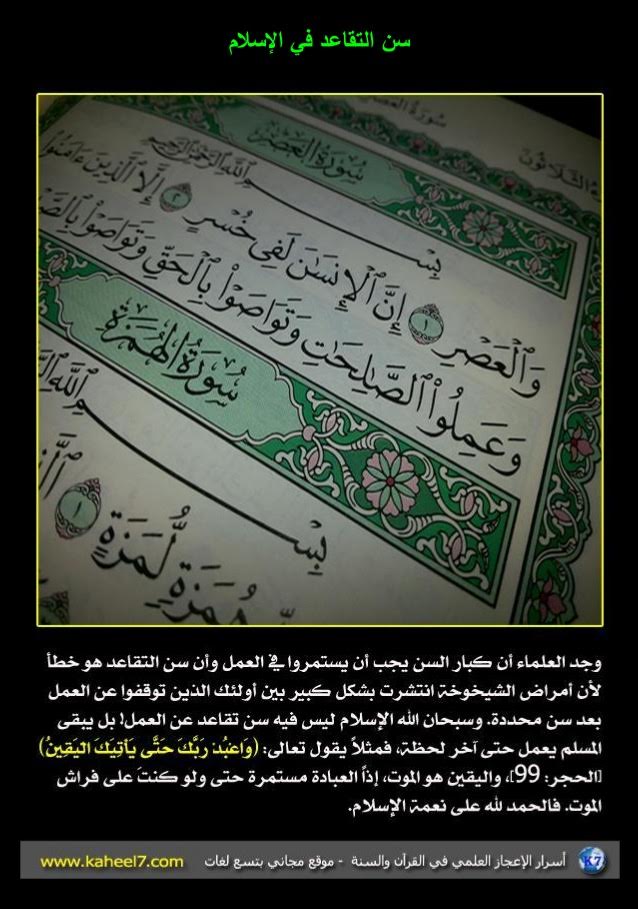 سن التقاعد في الإسلام
سُورَةُ العَصْرِ
بِسْمِ ٱللَّهِ ٱلرَّحْمَٰنِ ٱلرَّحِيمِ
وَٱلْعَصْرِ ١ إِنَّ ٱلْإِنسَٰنَ لَفِى خُسْرٍ ٢ إِلَّا ٱلَّذِينَ ءَامَنُوا۟
وَعَمِلُوا۟ ٱلصَّٰلِحَٰتِ وَتَوَاصَوْا۟ بِٱلْحَقِّ وَتَوَاصَوْا۟
سُورَةُ الهُمَزَةِ
بِسْمِ ٱللَّهِ
هُمَزَةٍ لُّمَزَةٍ ١
وجد العلماء أن كبار السن يجب أن يستمروا في العمل وأن سن التقاعد هو خطأ
لأن أمراض الشيخوخة انتشرت بشكل كبير بين أولئك الذين توقفوا عن العمل
بعد سن محددة. وسبحان الله الإسلام ليس فيه سن تقاعد عن العمل! بل يبقى
المسلم يعمل حتى آخر لحظة، فمثلاً يقول تعالى: (وَاعْبُدْ رَبَّكَ حَتَّى يَأْتِيَكَ الْيَقِينُ)
[الحجر: 99]، واليقين هو الموت، إذاً العبادة مستمرة حتى ولو كنتَ على فراش
الموت. فالحمد لله على نعمة الإسلام.
أسرار الإعجاز العلمي في القرآن والسنة - موقع مجاني بتسع لغات www.kaheel7.com
K7